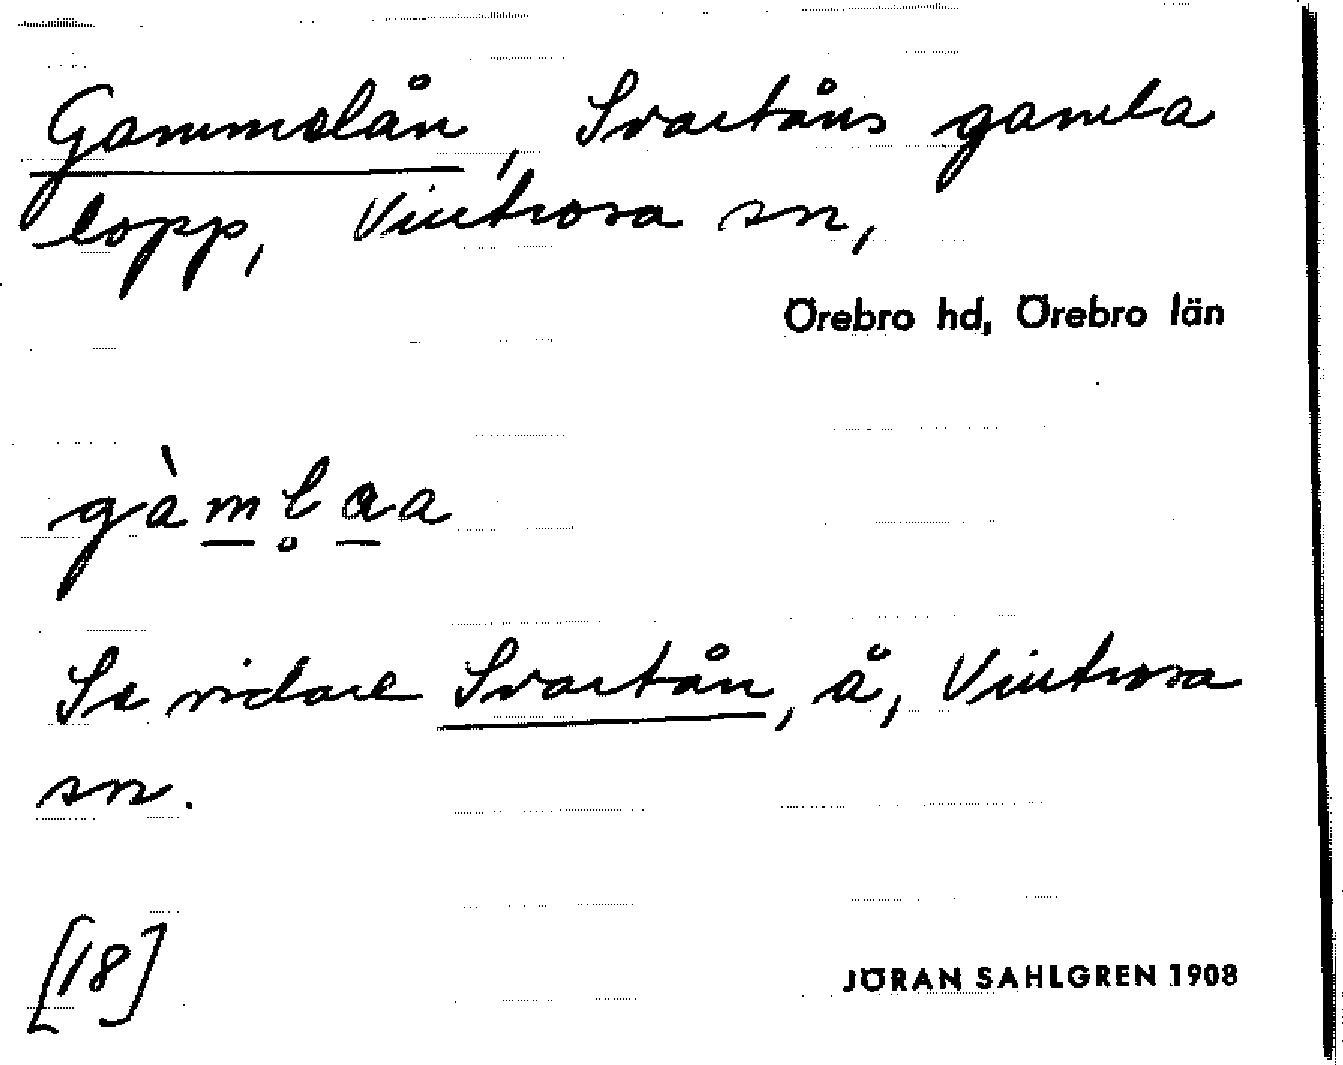 Gammelån, Svartåns gamla
lopp, Vintrosa sn,
Örebro hd, Örebro län
gàm̲l̥a̲a
Se vidare Svartån, å, Vintrosa
sn.
[18]
JÖRAN SAHLGREN 1908